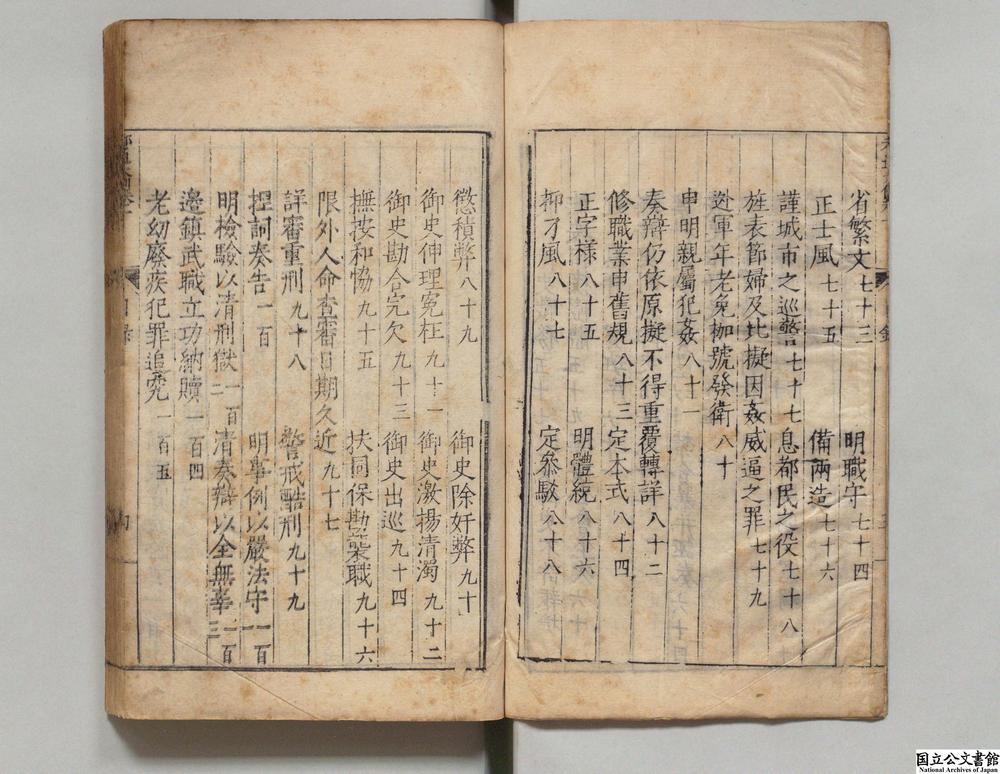 省繁文七十三 明職守七十四
正士風七十五 備兩造七十六
謹城市之巡警七十七 息都民之役七十八
旌表節婦及比擬因姦威逼之罪七十九
逃軍年老免枷號發衛八十
申明親屬犯姦八十一
奏辯仍依原擬不得重覆轉詳八十二
修職業申舊規八十三 定本式八十四
正字樣八十五 明體統八十六
抑刁風八十七 定參駁八十八
懲積弊八十九 御史除奸弊九十
御史伸理冤枉九十一 御史激揚清濁九十二
御史勘合完欠九十三 御史出巡九十四
撫按和恊九十五 扶同保勘襲職九十六
限外人命查審日期久近九十七
詳審重刑九十八 警戒酷刑九十九
捏詞奏告一百 明事例以嚴法守一百一
明檢驗以清刑獄一百二 清奏辯以全無辜一百三
邊鎮武職立功納贖一百四
老幼廢疾犯罪追究一百五
目錄
国立公文書館
National Archives of Japan